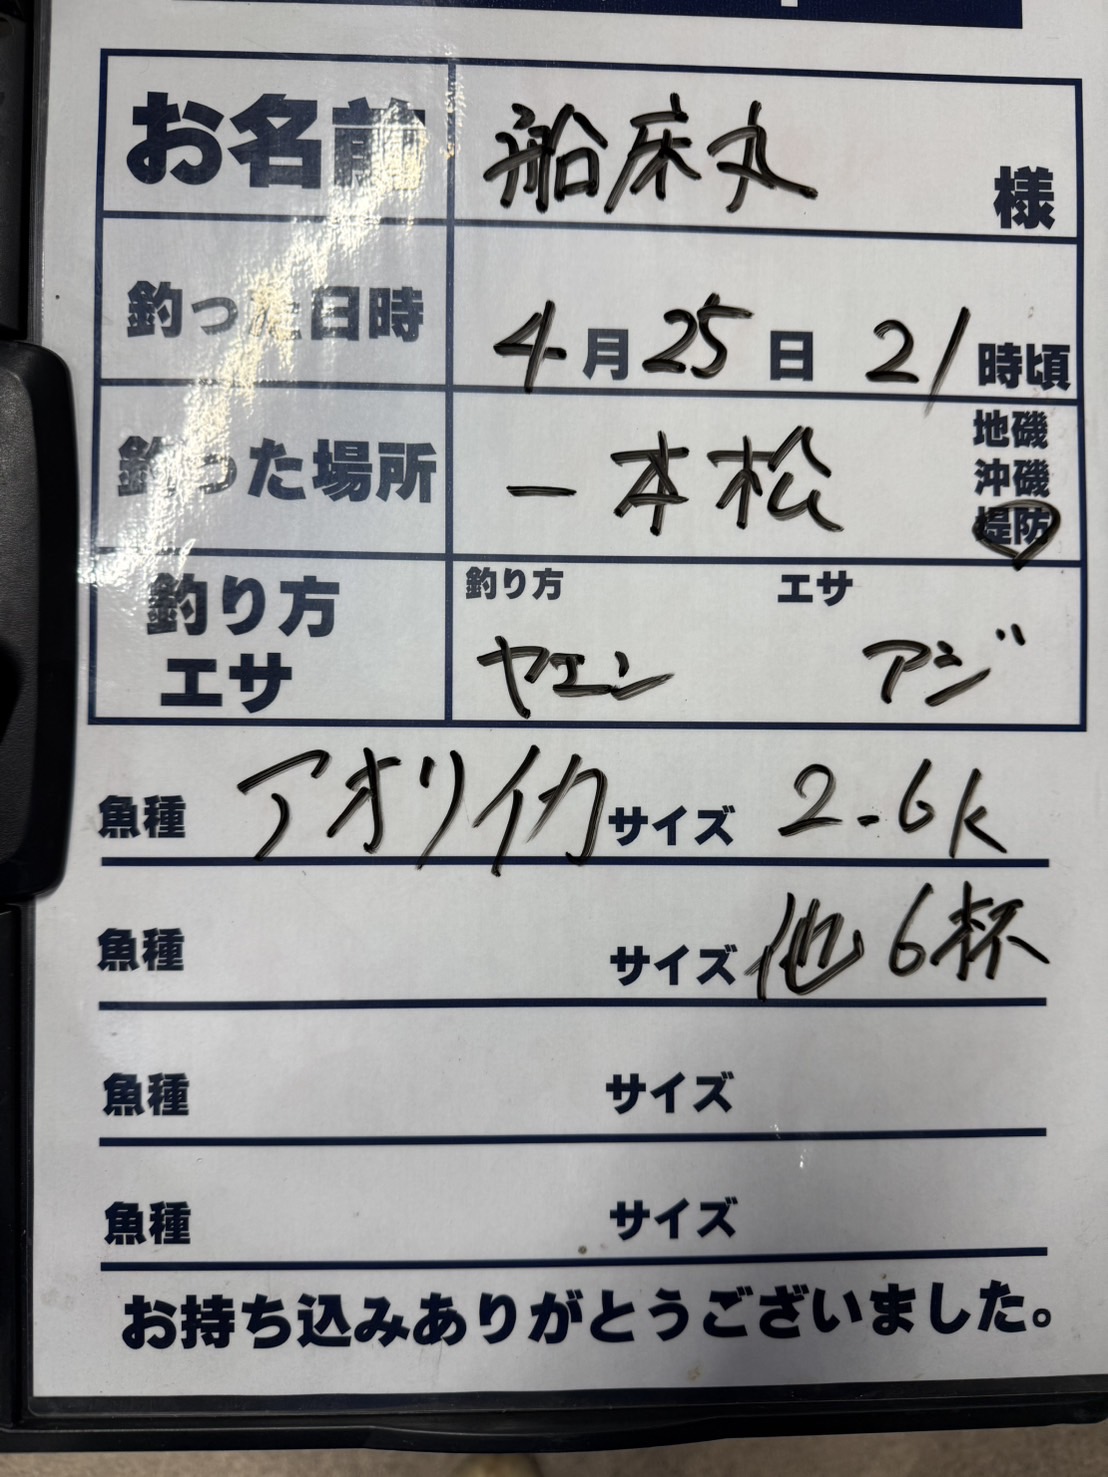 お名前 船床丸 様
釣った日時 4月25日 21時頃
釣った場所 一本松 地磯
沖磯
堤防
釣り方 エサ 釣り方 エサ
ヤエン アジ
魚種 アオリイカ サイズ 2.6k
魚種 サイズ 他6杯
魚種 サイズ
魚種 サイズ
お持ち込みありがとうございました。